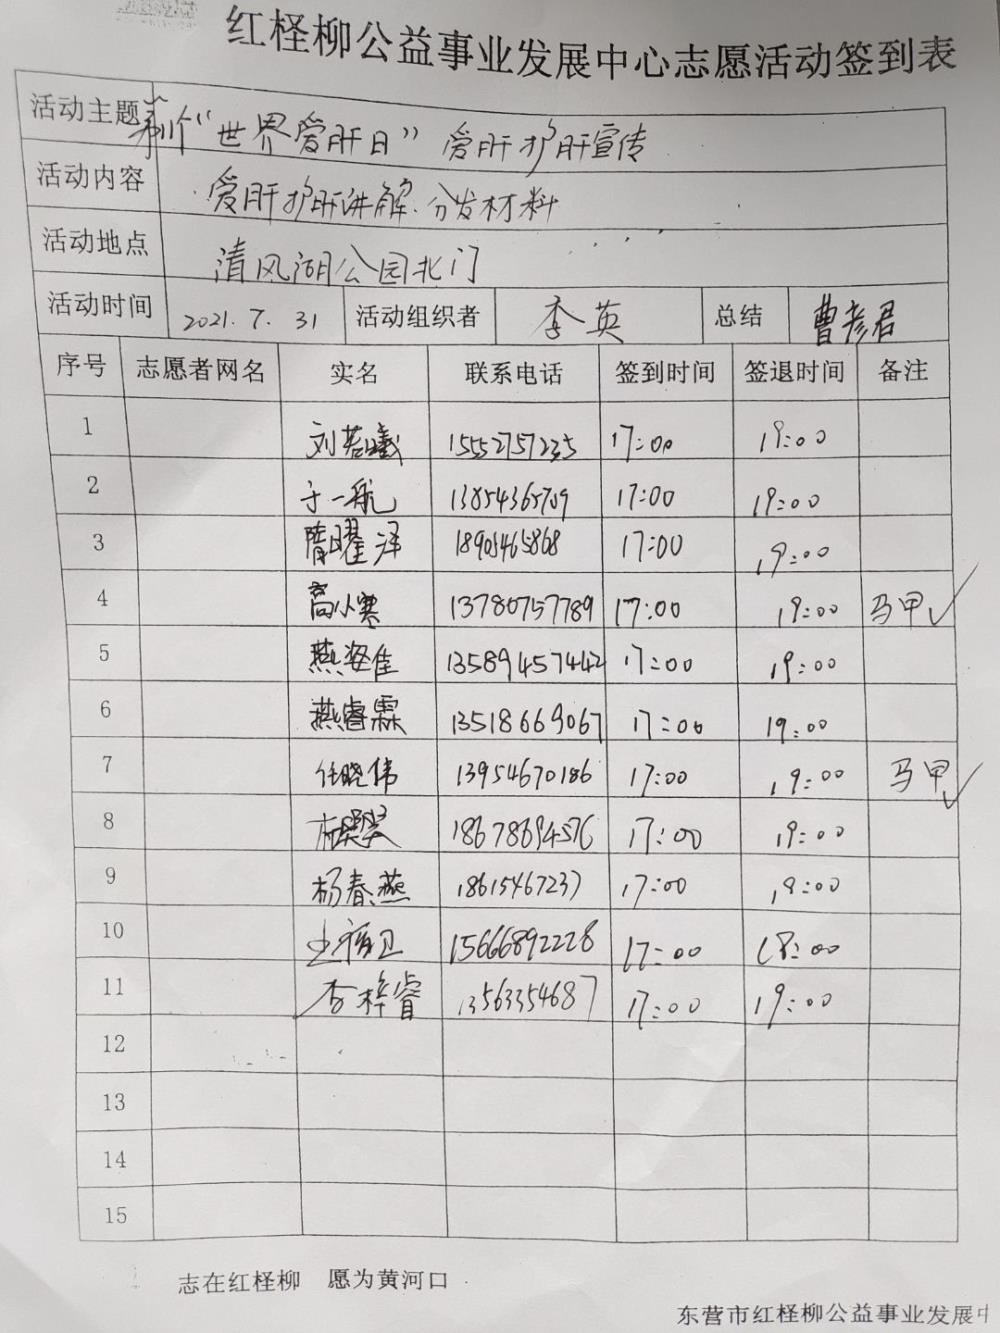 红柽柳公益事业发展中心志愿活动签到表
活动主题 "世界爱肝日" 爱肝护肝宣传
活动内容 爱肝护肝讲解.分发材料
活动地点 清风湖公园北门
活动时间 2021.7.31 活动组织者 李英 总结 曹彦君
序号 志愿者网名 实名 联系电话 签到时间 签退时间 备注
1 刘若曦 15552757235 17:00 19:00
2 于一航 13854365709 17:00 19:00
3 隋曜泽 18905465868 17:00 19:00
4 高小寒 13780757789 17:00 19:00 马甲✓
5 燕姿佳 13589457442 17:00 19:00
6 燕睿霖 13518669067 17:00 19:00
7 任晓伟 13954670186 17:00 19:00 马甲✓
8 18678694576 17:00 19:00
9 杨春燕 18615467237 17:00 19:00
10 15666892228 17:00 19:00
11 李梓睿 13563354687 17:00 19:00
12
13
14
15
志在红柽柳 愿为黄河口
东营市红柽柳公益事业发展中